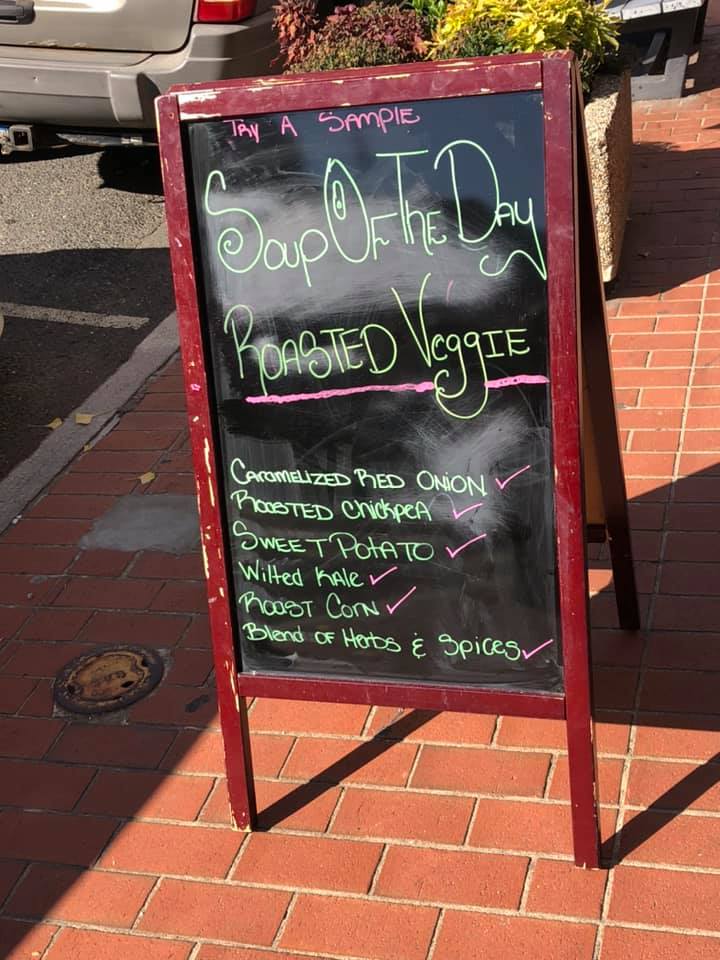 TRY A SAMPLE
Soup Of The Day
ROASTED VeggIE
CARAMELIZED RED ONION ✓
ROOSTED ChickpeA ✓
SWEET POTATO ✓
Wilted KAle ✓
ROOST CORN ✓
Blend OF Herbs & Spices ✓